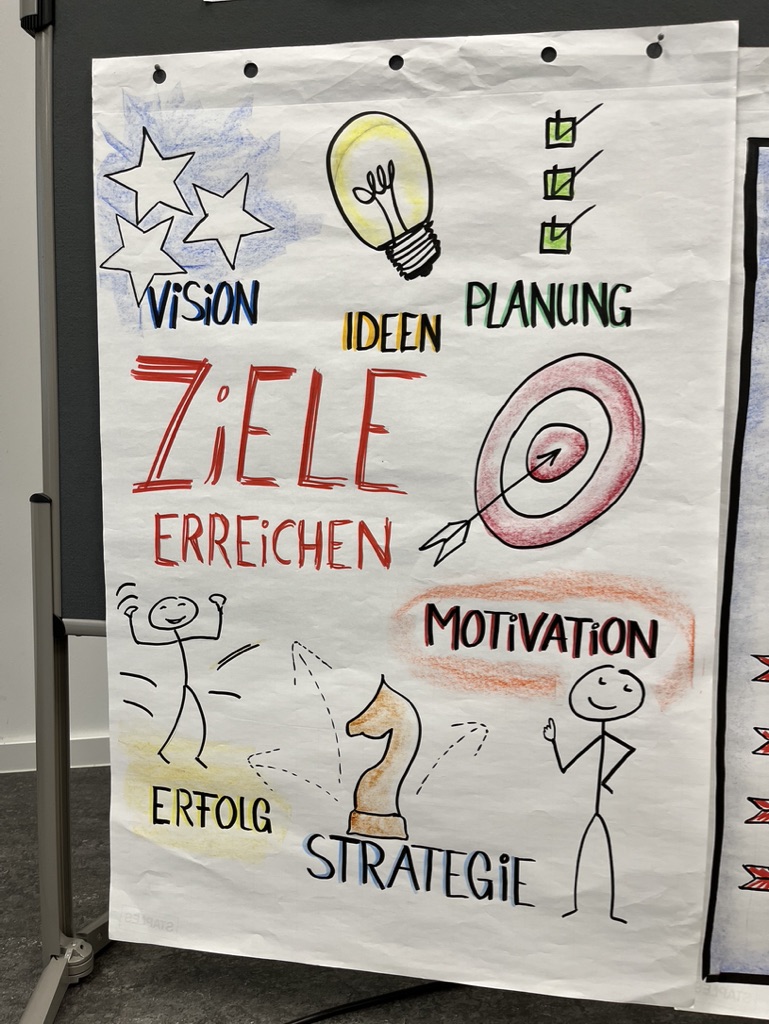 ViSiON
IDEEN
PLANUNG
ZiELE
ERREiCHEN
MOTiVATiON
ERFOLG
STRATEGiE